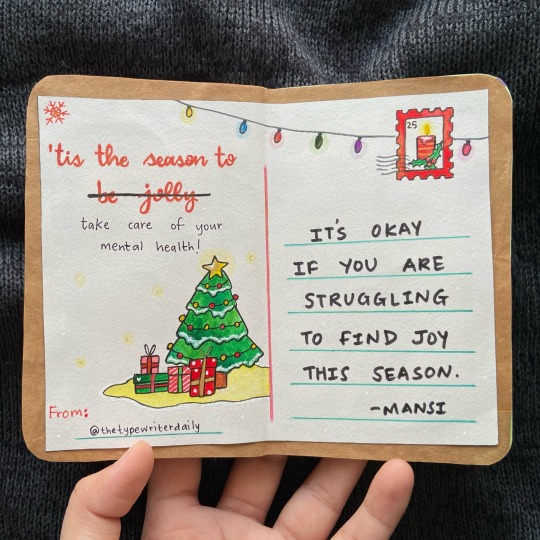 'tis the season to
be jolly
take care of your
mental health!
From:
@thetypewriterdaily
25
IT'S OKAY
IF YOU ARE
STRUGGLING
TO FIND JOY
THIS SEASON.
-MANSI